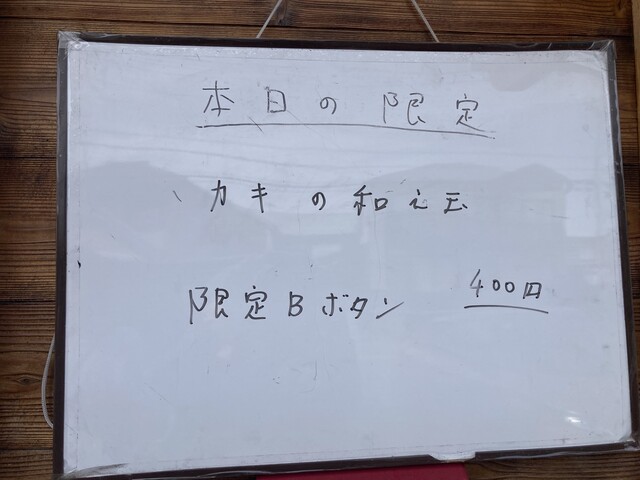 本日の限定
、カキの和え玉
限定Bボタン 400円